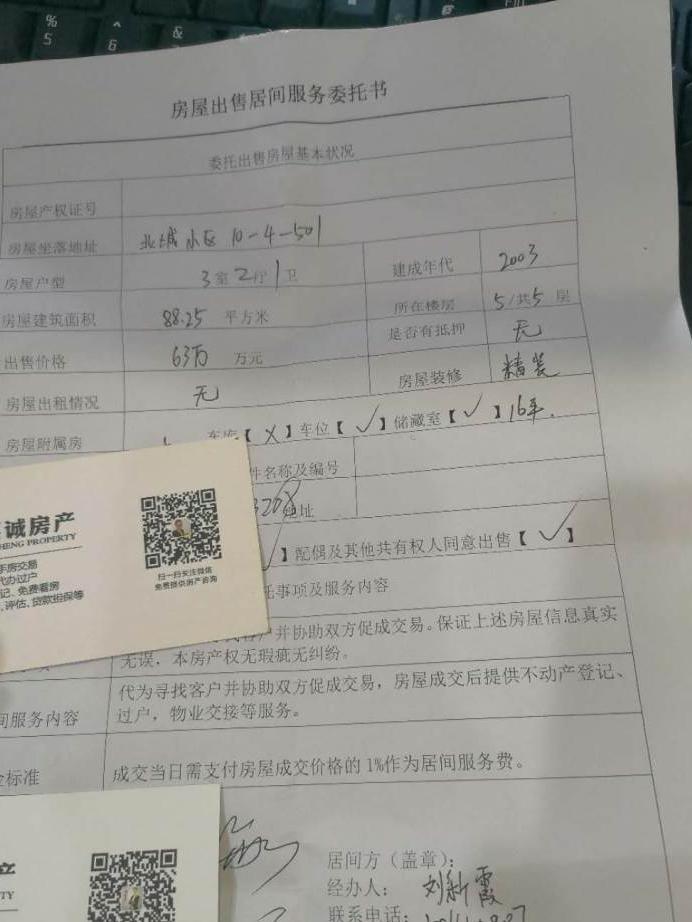 房屋出售居间服务委托书
委托出售房屋基本状况
房屋产权证号
房屋坐落地址 北城小区 10-4-501
房屋户型 3室2厅1卫 建成年代 2003
房屋建筑面积 88.25 平方米 所在楼层 5/共5层
出售价格 63万 万元 是否有抵押 无
房屋出租情况 无 房屋装修 精装
房屋附属房 车库【X】车位【✓】储藏室【✓】16平.
件名称及编号
地址
】配偶及其他共有权人同意出售【✓】
托事项及服务内容
并协助双方促成交易。保证上述房屋信息真实
无误，本房产权无瑕疵无纠纷。
间服务内容 代为寻找客户并协助双方促成交易，房屋成交后提供不动产登记、
过户，物业交接等服务。
标准 成交当日需支付房屋成交价格的1%作为居间服务费。
居间方（盖章）：
经办人： 刘新霞
联系电话：
诚房产
HENG PROPERTY
手房交易
代办过户
记、免费看房
、评估、贷款担保等
扫一扫关注微信
免费提供房产咨询
TY